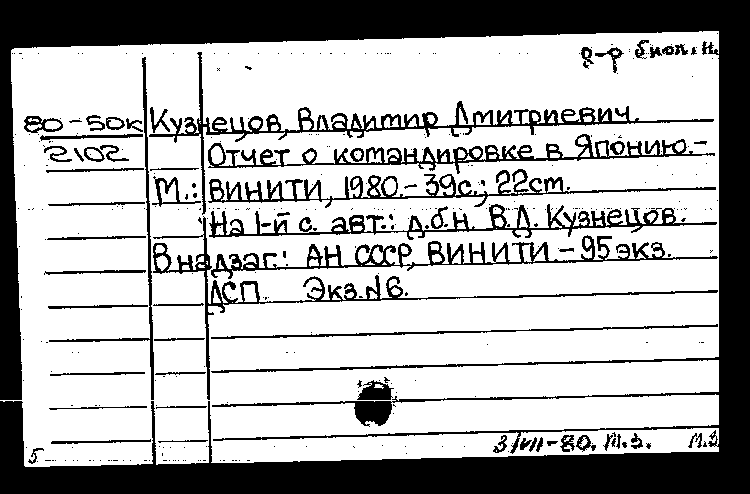 д-р биол. н.
80-50к Кузнецов, Владимир Дмитриевич.
2102 Отчет о командировке в Японию.-
М.: ВИНИТИ, 1980.- 39с.; 22см.
На 1-й с. авт.: д.б.н. В.Д. Кузнецов.
В надзаг.: АН СССР, ВИНИТИ. - 95 экз.
ДСП. Экз.№6.
3/VII-80. М.З. М.З
5